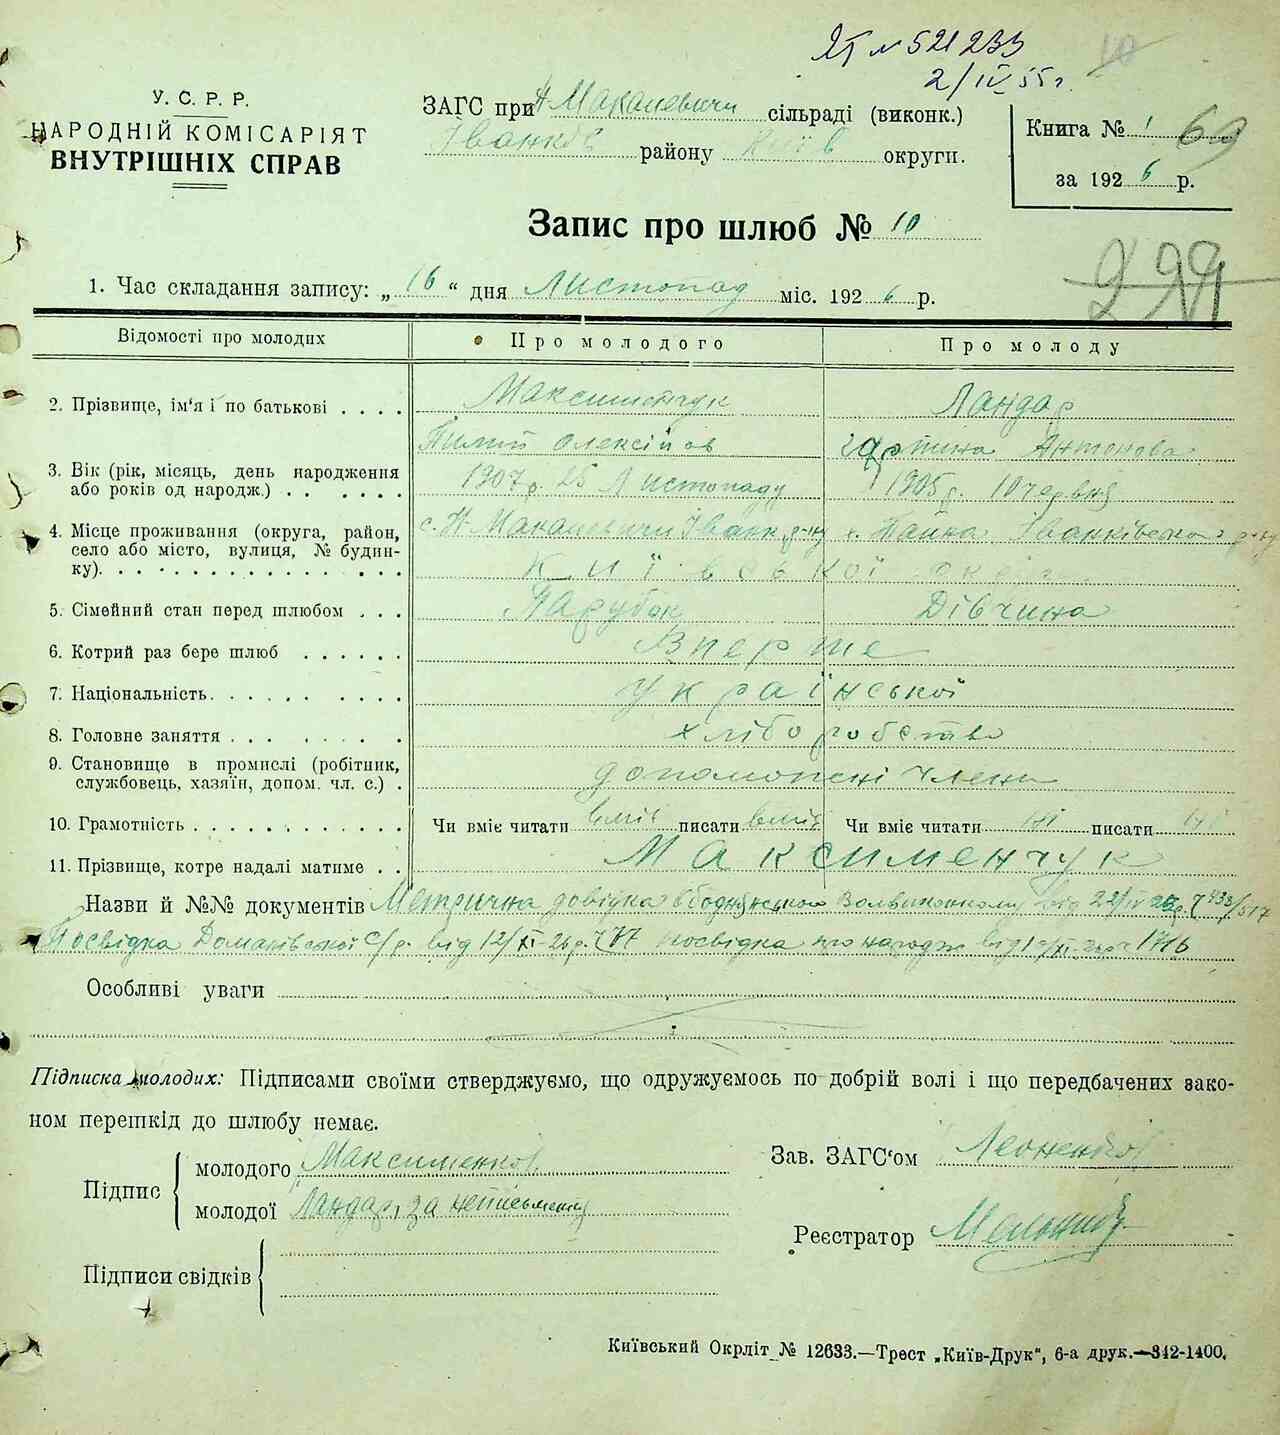 № 521233
2/IV 55 г.
У. С. Р. Р.
НАРОДНІЙ КОМІСАРІЯТ
ВНУТРІШНІХ СПРАВ
ЗАГС при Н Макалевичи сільраді (виконк.)
Іванків району Київ округи.
Книга № 1 69
за 1926 р.
Запис про шлюб № 10
299
1. Час складання запису: „16“ дня Листопад міс. 1926 р.
Відомості про молодих Про молодого Про молоду
2. Прізвище, ім'я і по батькові . . . . Максименчук Ландар
Пилип Олексійов Антонова
3. Вік (рік, місяць, день народження 1907 р. 25 Листопаду 1905 р. 10 червня
або років од народж.) . . . . . .
4. Місце проживання (округа, район, с. Н-Макалевичи Іванк р-ну Іванківського р-ну
село або місто, вулиця, № будин-
ку). Київської округи
5. Сімейний стан перед шлюбом . . . Парубок Дівчина
6. Котрий раз бере шлюб . . . . . . Вперше
7. Національність. . . . . . . . . . Української
8. Головне заняття . . . . . . . . . хліборобство
9. Становище в промислі (робітник,
службовець, хазяїн, допом. чл. с.) . допомопені члени
10. Грамотність . . . . . . . . . . . Чи вміє читати вміє писати вміє Чи вміє читати ні писати ні
11. Прізвище, котре надалі матиме . . Максименчук
Назви й №№ документів Метрична довідка Волвиконкому від 22/IV 26 р. 433/517
Посвідка С/р. від 12/XI-26 р. 777 посвідка про народж від 1716
Особливі уваги
Підписка молодих: Підписами своїми стверджуємо, що одружуємось по добрій волі і що передбачених зако-
ном перешкід до шлюбу немає.
Підпис
молодого Максименков
молодої Ландар, за неписьменну
Зав. ЗАГС'ом Леоненко
Реєстратор Мельник
Підписи свідків
Київський Окрліт № 12633.—Трест „Київ-Друк“, 6-а друк.—342-1400.